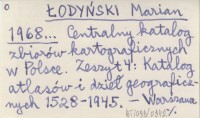 ŁODYŃSKI Marian
1968... Centralny katalog
zbiorów kartograficznych
w Polsce. Zeszyt 4: Katalog
atlasów i dzieł geograficz-
nych 1528-1945. – Warszawa